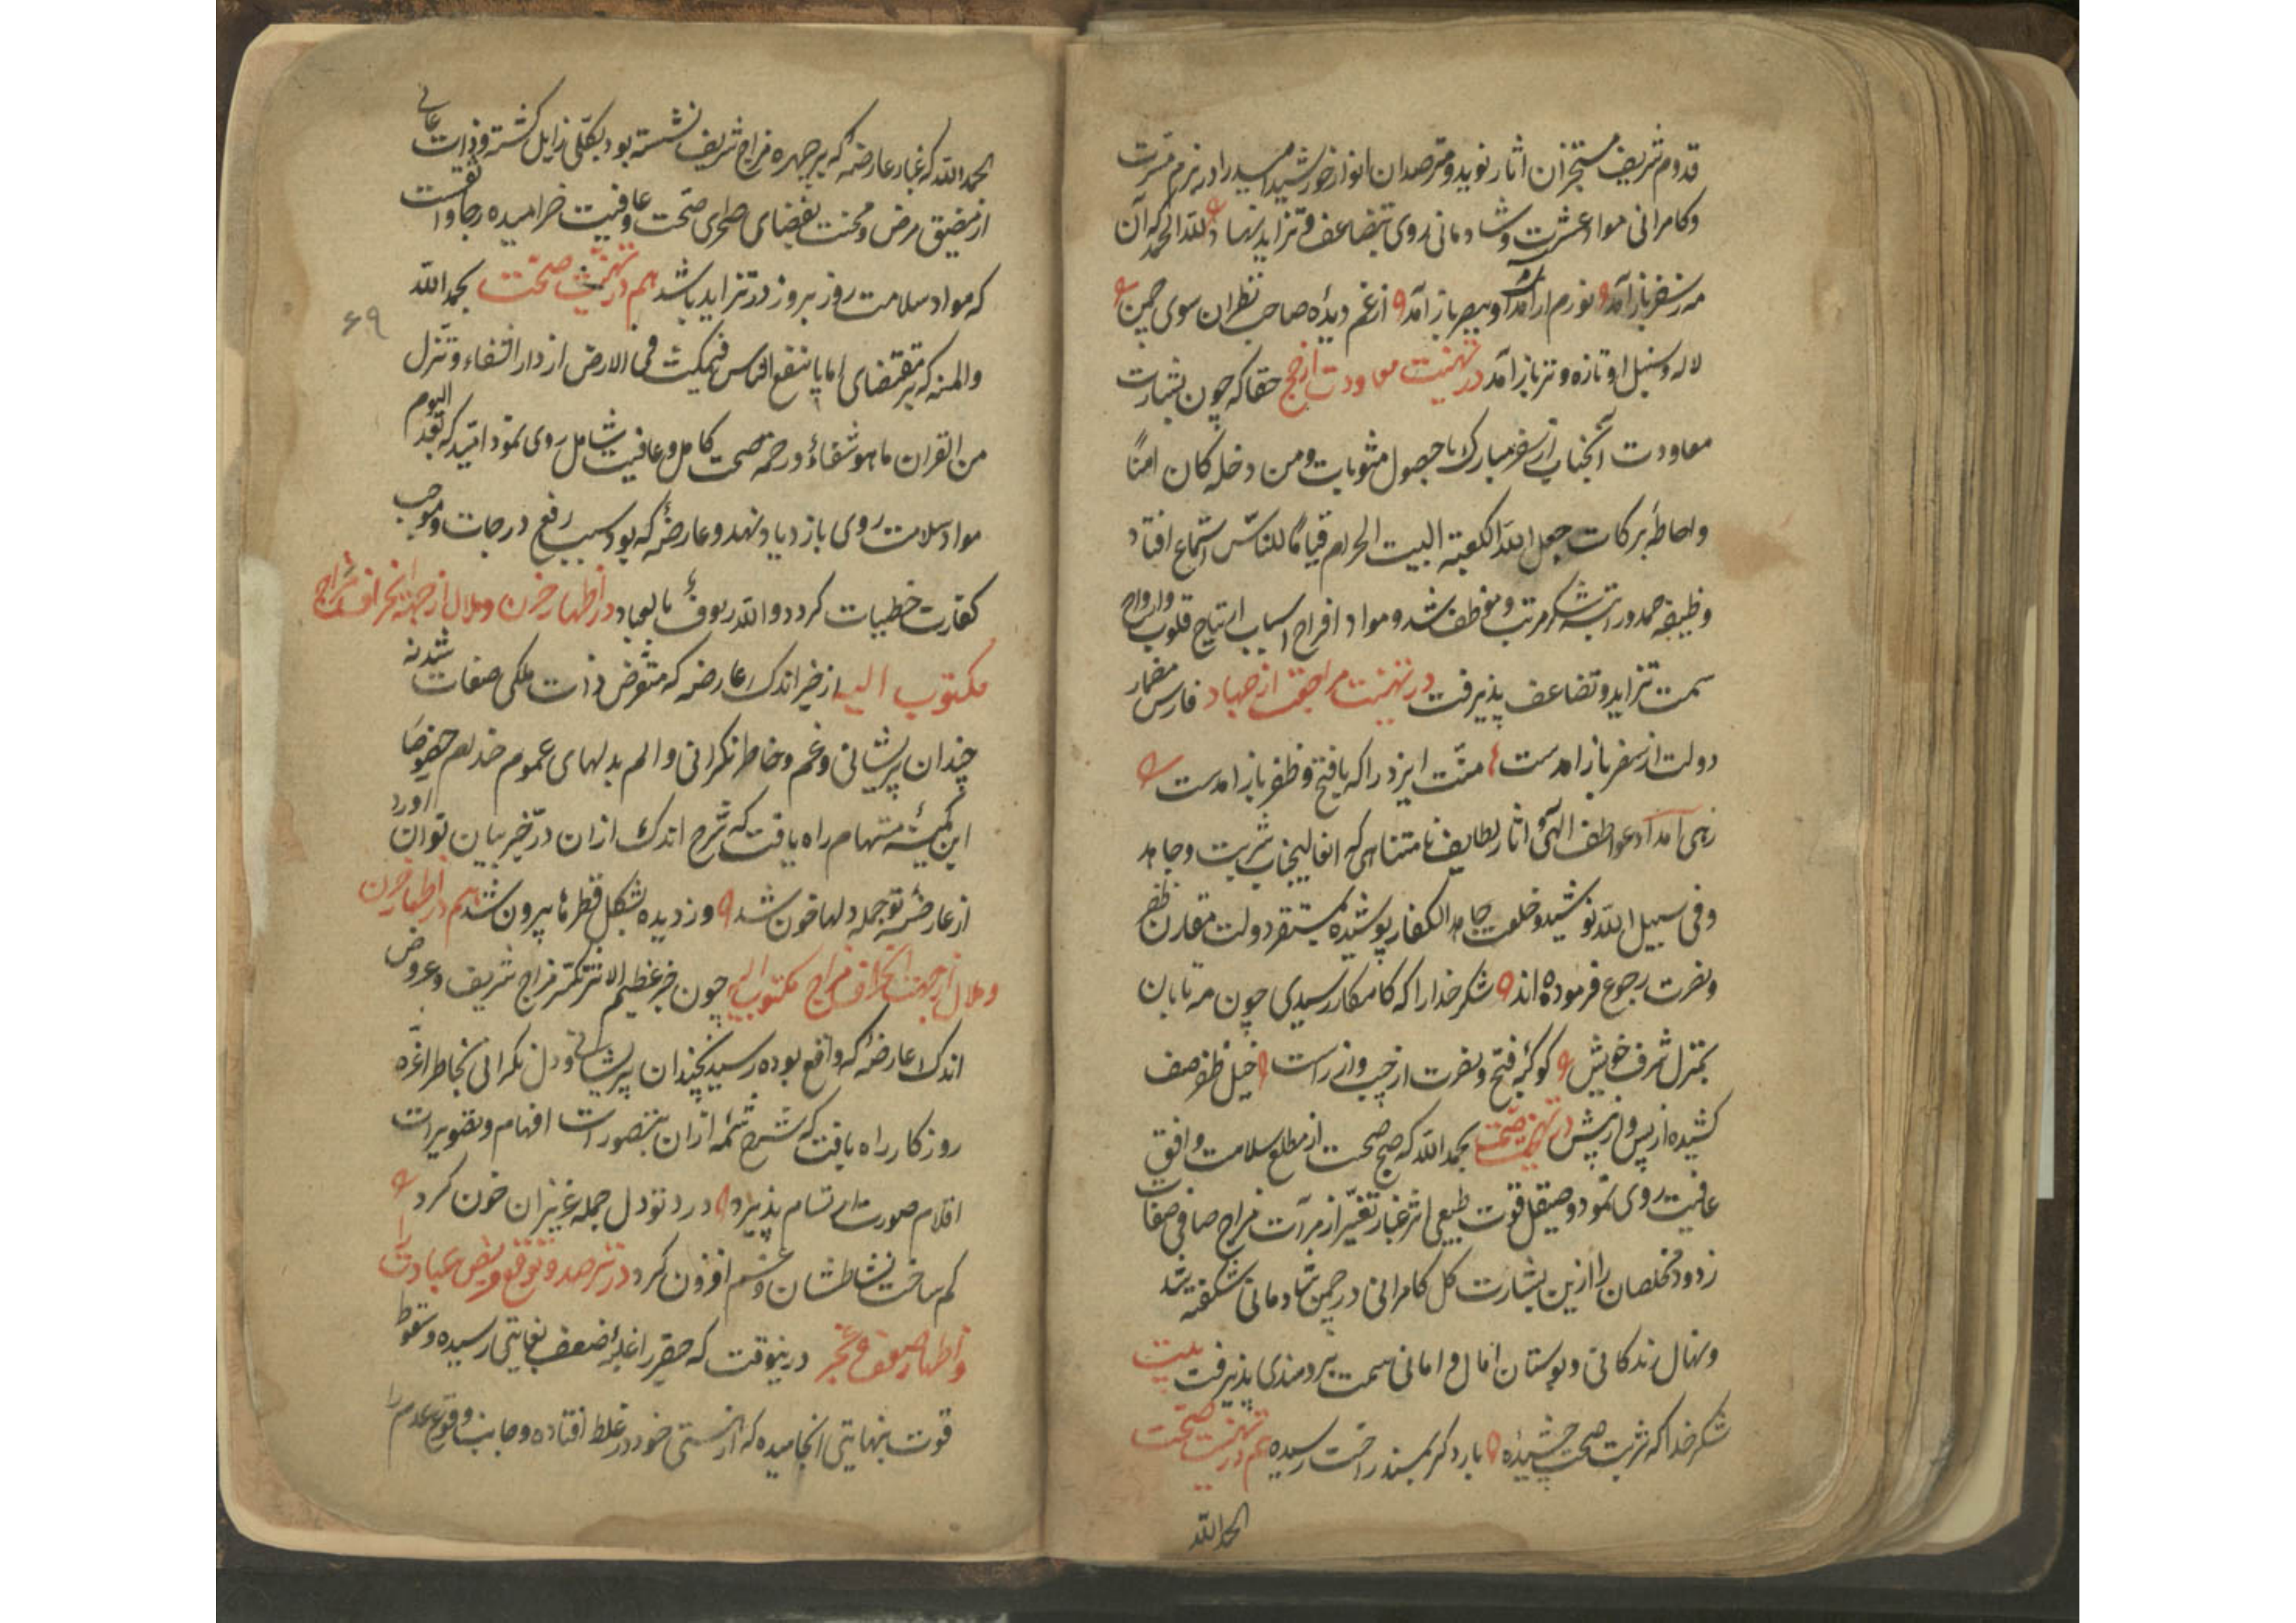 قدوم شریف مستخبران اثار نوید و مترصدان انوار خورشید امید را در بزم مسرت
و کامرانی مواد عشرت و شادمانی روی بتضاعف و تزاید نهاد و لله الحمد که آن
مه ز سفر باز آمد نورم از آمدن او ببصر باز آمد از غم دیده صاحب نظران سوی چمن
لاله و سنبل او تازه و تر باز آمد در تهنیت معاودت از حج حقا که چون بشارت
معاودت آنجناب از سفر مبارک با حصول مثوبات و من دخله کان امنًا
و احاطهٔ برکات جعل الله الکعبة البیت الحرام قیامًا للناس استماع افتاد
وظیفه حمد و راتبه شکر مرتب و موظف شد و مواد افراح و اسباب ارتیاح قلوب و ارواح
سمت تزاید و تضاعف پذیرفت در تهنیت مراجعت از جهاد فارس مضمار
دولت از سفر باز امدست منّت ایزد را که با فتح و ظفر باز امدست
زهی امداد عواطف الهی و اثار لطایف نامتناهی که انعالیجناب شربت و جاهد
و فی سبیل الله نوشیده و خلعت جاهد الکفار پوشیده بمستقر دولت مقارن ظفر
و نصرت رجوع فرموده اند شکر خدا را که کامکار رسیدی چون مه تابان
بمنزل شرف خویش کوکبهٔ فتح و نصرت از چپ و از راست خیل ظفر صف
کشیده از پس و از پیش در تهنیت صحت بحمد الله که صبح صحت از مطلع سلامت و افق
عافیت روی نمود و صیقل قوت طبیعی اثر غبار تغیّر از مرآت مزاج صافی صفات
زدود مخلصان را ازین بشارت کل کامرانی در چمن شادمانی شکفته شد
و نهال زندکانی در بوستان امال و امانی سمت برومندی پذیرفت بیت
شکر خدا که شربت صحت چشیدهٔ بار دکر بمسند راحت رسیدهٔ هم در تهنیت صحت
الحمد الله
الحمد الله که غبار عارضه که بر چهره مزاج شریف نشسته بود بکلی زایل کشته و ذات عالی
از مضیق مرض و محنت بفضای صحرای صحت و عافیت خرامیده رجا واثقست
که مواد سلامت روز بروز در تزاید باشد هم در تهنیت صحت بحمد الله
۶۹
والمنه که بر مقتضای اما ما ینفع الناس فیمکث فی الارض از دار الشفاء و ننزل
من القران ما هو شفاءٌ و رحمة صحت کامل و عافیت شامل روی نمود امّید که بعد الیوم
مواد سلامت روی بازدیاد نهد و عارضهٔ که بود سبب رفع درجات و موجب
کفارت خطیات کردد والله رؤف بالعباد در اظهار حزن و ملال از جهة انحراف مزاج
مکتوب الیه از خبر اندک عارضه که متعرض ذات ملکی صفات شده
چندان پریشانی و غم و خاطر نکرانی و الم بدلهای عموم خدام خصوصًا
این کمینهٔ مستهام راه یافت که شرح اندک ازان در حیّز بیان توان اورد
از عارضهٔ تو جمله دلها خون شد وز دیده بشکل قطرها بیرون شد هم در اظهار حزن
و ملال از جهت انحراف مزاج مکتوب الیه چون خبر عظیم الاثر تکسّر مزاج شریف و عروض
اندک عارضهٔ که واقع بوده رسید نچندان پریشانی و دل نکرانی بخاطر اغرّه
روزکار راه یافت که شرح شمهٔ ازان بتصورات افهام و تصویرات
اقلام صورت ارتسام پذیرد درد تو دل جمله عزیزان خون کرد
کم ساخت نشاطشان و غم افزون کرد در ترصد و توقع فیض عیادت را
و اظهار ضعف و عجز درینوقت که حقیر را غلبهٔ ضعف بغایتی رسیده و سقوط
قوت بنهایتی انجامیده که از هستی خود در غلط افتاده و جانب وقوع عدم را